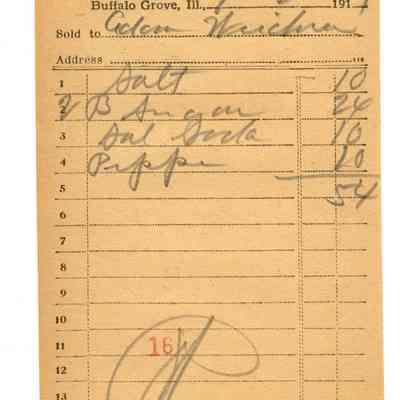 Buffalo Grove, Ill., 191
Sold to Adam Weidner
Address
1 Salt 10
2 B Sugar 24
3 Sal Soda 10
4 Pepper 10
5 54
6
7
8
9
10
11 16
12
13